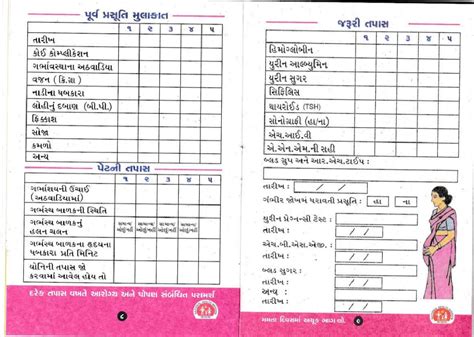 પૂર્વ પ્રસૂતિ મુલાકાત
૧ ૨ ૩ ૪ ૫
તારીખ
કોઈ કોમ્પ્લીકેશન
ગર્ભાવસ્થાના અઠવાડિયા
વજન (કિ.ગ્રા)
નાડીના ધબકારા
લોહીનું દબાણ (બી.પી.)
ફિક્કાશ
સોજા
કમળો
અન્ય
પેટની તપાસ
૧ ૨ ૩ ૪ ૫
ગર્ભાશયની ઉંચાઈ
(અઠવાડિયામાં)
ગર્ભસ્થ બાળકની સ્થિતિ
ગર્ભસ્થ બાળકનું
હલન ચલન
ગર્ભસ્થ બાળકના હૃદયના
ધબકારા પ્રતિ મિનિટ
યોનિની તપાસ જો
કરવામાં આવેલ હોય તો
દરેક તપાસ વખતે આરોગ્ય અને પોષણ સંબંધિત પરામર્શ
૮
જરૂરી તપાસ
૧ ૨ ૩ ૪ ૫
હિમોગ્લોબીન
યુરીન આલ્બ્યુમિન
યુરીન સુગર
સિફિલિસ
થાયરોઈડ (TSH)
સોનોગ્રાફી (હા/ના)
એચ.આઈ.વી
એ.એન.એમ.ની સહી
બ્લડ ગ્રુપ અને આર.એચ.ટાઈપ :
તારીખ : / /
ગંભીર જોખમ ધરાવતી પ્રસૂતિ : હા ના
યુરીન પ્રેગ્નન્સી ટેસ્ટ :
તારીખ : / /
એચ.બી.એસ.એજી. :
તારીખ : / /
બ્લડ સુગર :
તારીખ : / /
મમતા દિવસમાં અચૂક ભાગ લો.
૯